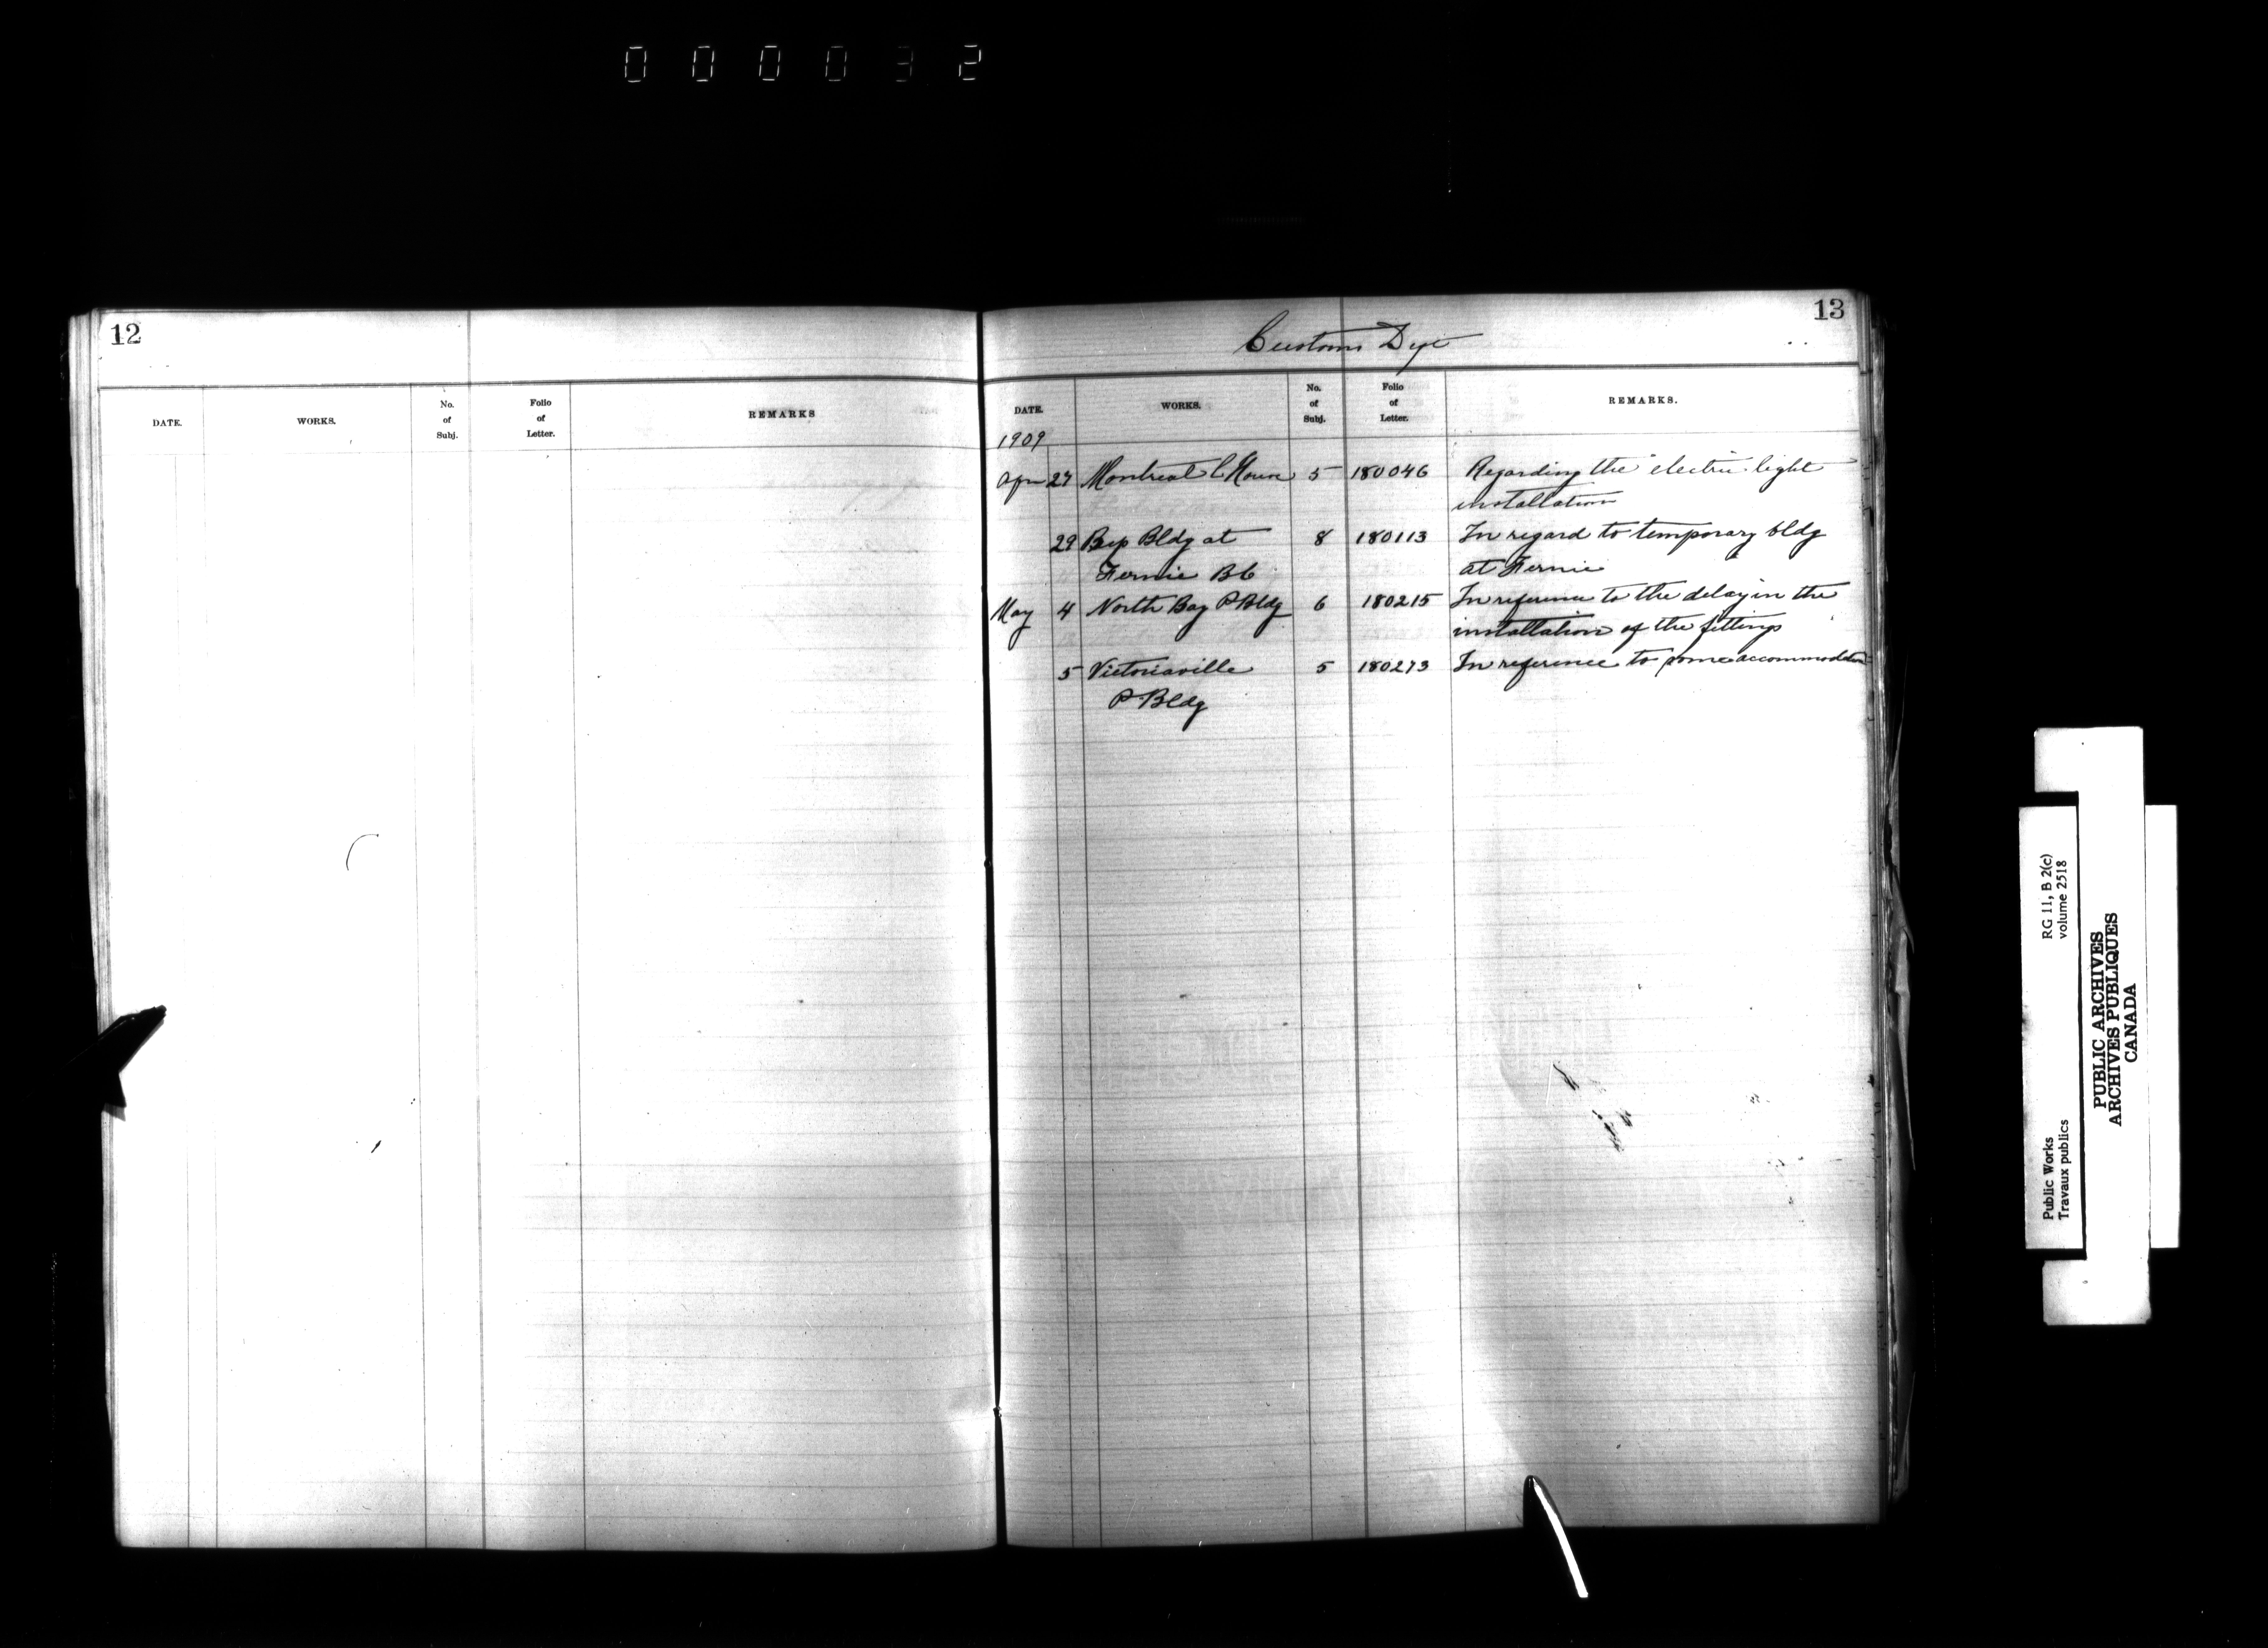 000032
12
DATE. WORKS. No. of Subj. Folio of Letter. REMARKS
13
Customs Dept
DATE. WORKS. No. of Subj. Folio of Letter. REMARKS.
1909
Apr 27 Montreal C House 5 180046 Regarding the electric light
installation
29 Exp Bldg at 8 180113 In regard to temporary bldg
Fernie BC at Fernie
May 4 North Bay P Bldg 6 180215 In reference to the delay in the
installation of the fittings
5 Victoriaville 5 180273 In reference to some accommodation
P. Bldg
Public Works RG 11, B 2(c)
Travaux publics volume 2518
PUBLIC ARCHIVES
ARCHIVES PUBLIQUES
CANADA